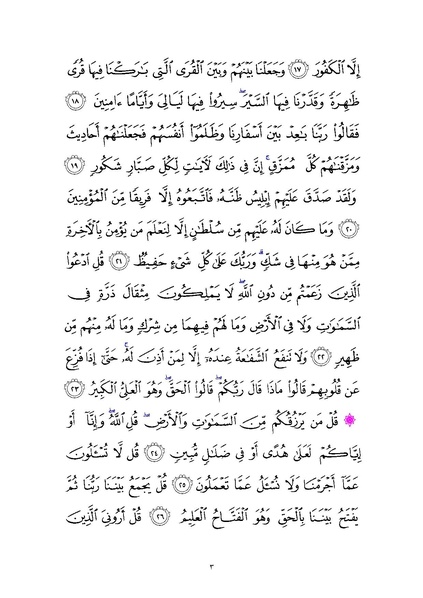 إِلَّا الْكَفُورَ ﴿١٧﴾ وَجَعَلْنَا بَيْنَهُمْ وَبَيْنَ الْقُرَى الَّتِي بَارَكْنَا فِيهَا قُرًى
ظَاهِرَةً وَقَدَّرْنَا فِيهَا السَّيْرَ ۖ سِيرُوا فِيهَا لَيَالِيَ وَأَيَّامًا ءَامِنِينَ ﴿١٨﴾
فَقَالُوا رَبَّنَا بَاعِدْ بَيْنَ أَسْفَارِنَا وَظَلَمُوا أَنفُسَهُمْ فَجَعَلْنَاهُمْ أَحَادِيثَ
وَمَزَّقْنَاهُمْ كُلَّ مُمَزَّقٍ ۚ إِنَّ فِي ذَٰلِكَ لَآيَاتٍ لِّكُلِّ صَبَّارٍ شَكُورٍ ﴿١٩﴾
وَلَقَدْ صَدَّقَ عَلَيْهِمْ إِبْلِيسُ ظَنَّهُ فَاتَّبَعُوهُ إِلَّا فَرِيقًا مِّنَ الْمُؤْمِنِينَ
﴿٢٠﴾ وَمَا كَانَ لَهُ عَلَيْهِم مِّن سُلْطَانٍ إِلَّا لِنَعْلَمَ مَن يُؤْمِنُ بِالْآخِرَةِ
مِمَّنْ هُوَ مِنْهَا فِي شَكٍّ ۗ وَرَبُّكَ عَلَىٰ كُلِّ شَيْءٍ حَفِيظٌ ﴿٢١﴾ قُلِ ادْعُوا
الَّذِينَ زَعَمْتُم مِّن دُونِ اللَّهِ ۖ لَا يَمْلِكُونَ مِثْقَالَ ذَرَّةٍ فِي
السَّمَاوَاتِ وَلَا فِي الْأَرْضِ وَمَا لَهُمْ فِيهِمَا مِن شِرْكٍ وَمَا لَهُ مِنْهُم مِّن
ظَهِيرٍ ﴿٢٢﴾ وَلَا تَنفَعُ الشَّفَاعَةُ عِندَهُ إِلَّا لِمَنْ أَذِنَ لَهُ ۚ حَتَّىٰ إِذَا فُزِّعَ
عَن قُلُوبِهِمْ قَالُوا مَاذَا قَالَ رَبُّكُمْ ۖ قَالُوا الْحَقَّ ۖ وَهُوَ الْعَلِيُّ الْكَبِيرُ ﴿٢٣﴾
۞ قُلْ مَن يَرْزُقُكُم مِّنَ السَّمَاوَاتِ وَالْأَرْضِ ۖ قُلِ اللَّهُ ۖ وَإِنَّا أَوْ
إِيَّاكُمْ لَعَلَىٰ هُدًى أَوْ فِي ضَلَالٍ مُّبِينٍ ﴿٢٤﴾ قُل لَّا تُسْأَلُونَ
عَمَّا أَجْرَمْنَا وَلَا نُسْأَلُ عَمَّا تَعْمَلُونَ ﴿٢٥﴾ قُلْ يَجْمَعُ بَيْنَنَا رَبُّنَا ثُمَّ
يَفْتَحُ بَيْنَنَا بِالْحَقِّ وَهُوَ الْفَتَّاحُ الْعَلِيمُ ﴿٢٦﴾ قُلْ أَرُونِيَ الَّذِينَ
٣